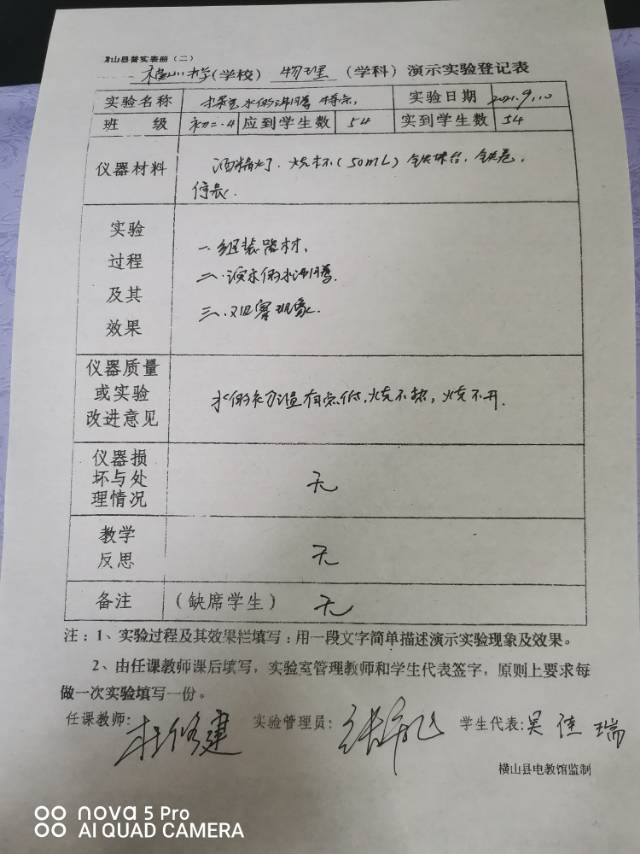 横山县普实表册（二）
横山中学（学校） 物理（学科）演示实验登记表
实验名称 探究水的沸腾特点。 实验日期 2021.9.10
班 级 初二.4 应到学生数 54 实到学生数 54
仪器材料 酒精灯、烧杯（50mL）铁架台、铁圈，
实验过程及其效果
一.组装器材，
二.演水的水沸腾.
三.观察现象.
仪器质量或实验改进意见 水的初温有点低，烧不热，烧不开.
仪器损坏与处理情况 无
教学反思 无
备注 （缺席学生） 无
注：1、实验过程及其效果栏填写：用一段文字简单描述演示实验现象及效果。
2、由任课教师课后填写，实验室管理教师和学生代表签字，原则上要求每
做一次实验填写一份。
任课教师： 杜修建 实验管理员： 学生代表：吴佳瑞
横山县电教馆监制
nova 5 Pro
AI QUAD CAMERA